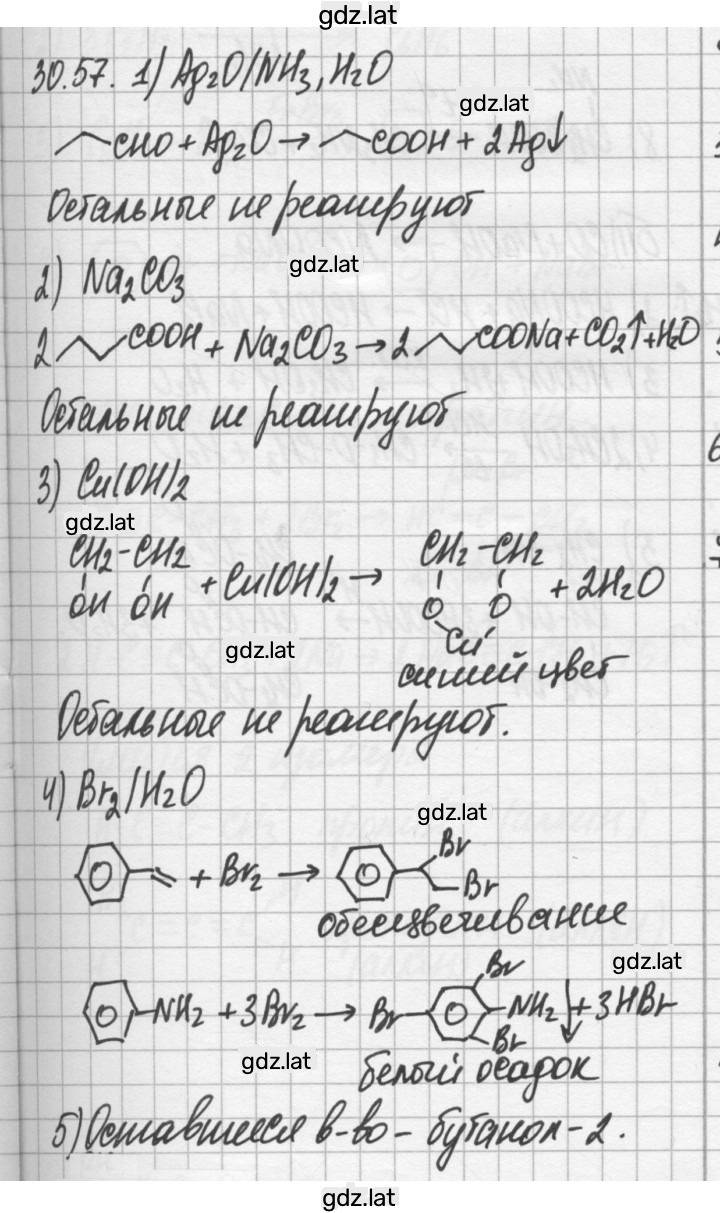 gdz.lat
30.57. 1) Ag₂O/NH₃, H₂O
gdz.lat
CHO + Ag₂O → COOH + 2Ag↓
Остальные не реагируют
gdz.lat
2) Na₂CO₃
2 COOH + Na₂CO₃ → 2 COONa + CO₂↑ + H₂O
Остальные не реагируют
3) Cu(OH)₂
gdz.lat
CH₂-CH₂ + Cu(OH)₂ → CH₂-CH₂ + 2H₂O
OH OH O O
gdz.lat
Cu
синий цвет
Остальные не реагируют.
4) Br₂/H₂O
gdz.lat
Br
+ Br₂ → Br
обесцвечивание
gdz.lat
Br
NH₂ + 3Br₂ → Br NH₂↓ + 3HBr
Br
gdz.lat
белый осадок
5) Оставшееся в-во - бутанол-2.
gdz.lat